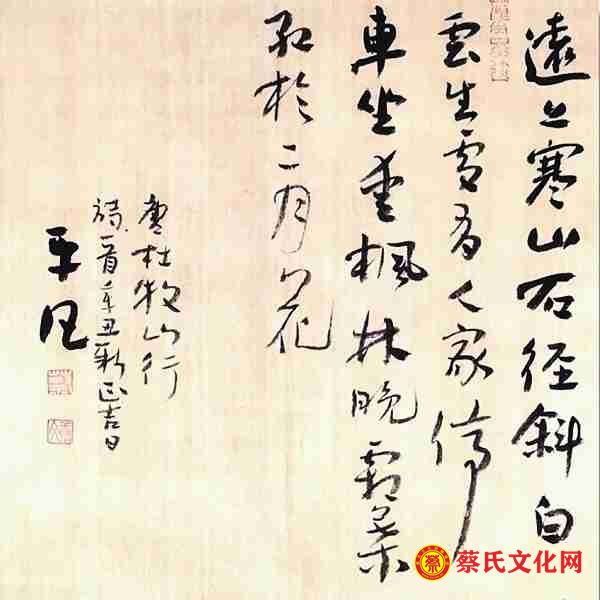 遠上寒山石径斜白
雲生處有人家停
車坐愛楓林晚霜葉
紅於二月花
唐杜牧山行
詩一首辛丑新正吉日
平凡
蔡氏文化网